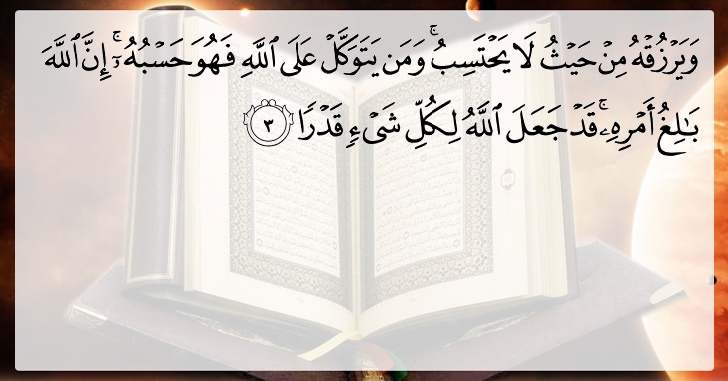 وَيَرْزُقْهُ مِنْ حَيْثُ لَا يَحْتَسِبُ ۚ وَمَن يَتَوَكَّلْ عَلَى ٱللَّهِ فَهُوَ حَسْبُهُۥٓ ۚ إِنَّ ٱللَّهَ
بَـٰلِغُ أَمْرِهِۦ ۚ قَدْ جَعَلَ ٱللَّهُ لِكُلِّ شَىْءٍ قَدْرًا ٣